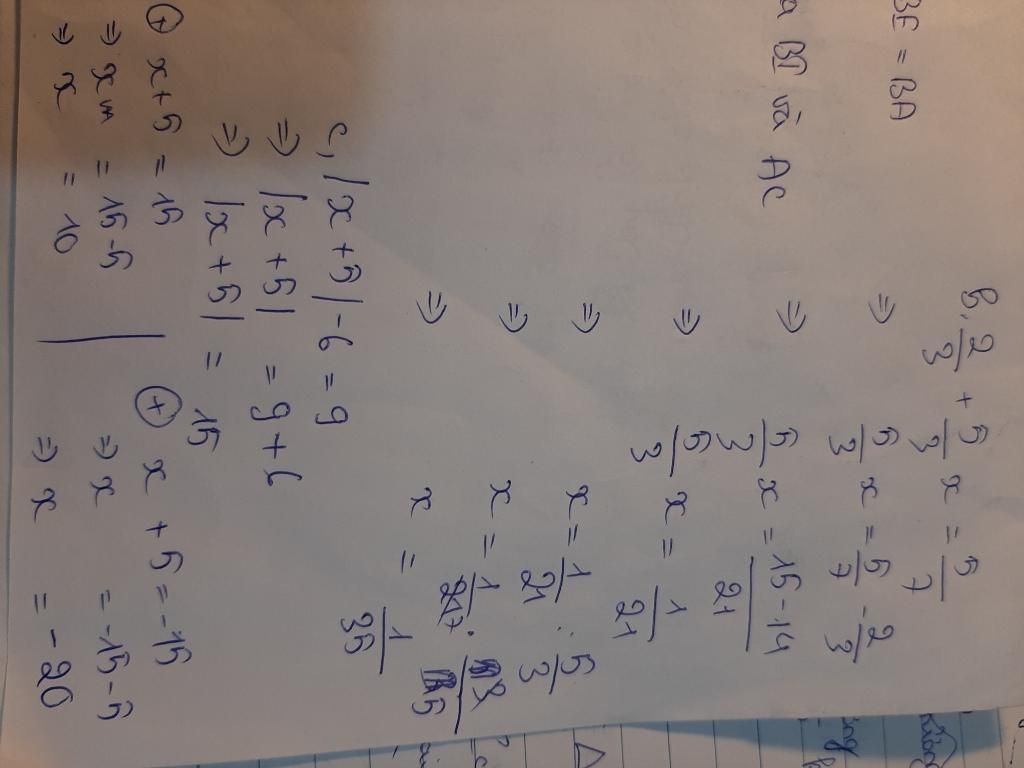 BE = BA
a BI và AC
b, 2/3 + 5/3 x = 5/7
⇒ 5/3 x = 5/7 - 2/3
⇒ 5/3 x = 15-14/21
⇒ 5/3 x = 1/21
⇒ x = 1/21 : 5/3
⇒ x = 1/21 7 . 3/5
⇒ x = 1/35
c, |x+5| - 6 = 9
⇒ |x+5| = 9+6
⇒ |x+5| = 15
⊕ x+5 = 15
⇒ x = 15-5
⇒ x = 10
⊕ x + 5 = -15
⇒ x = -15-5
⇒ x = -20